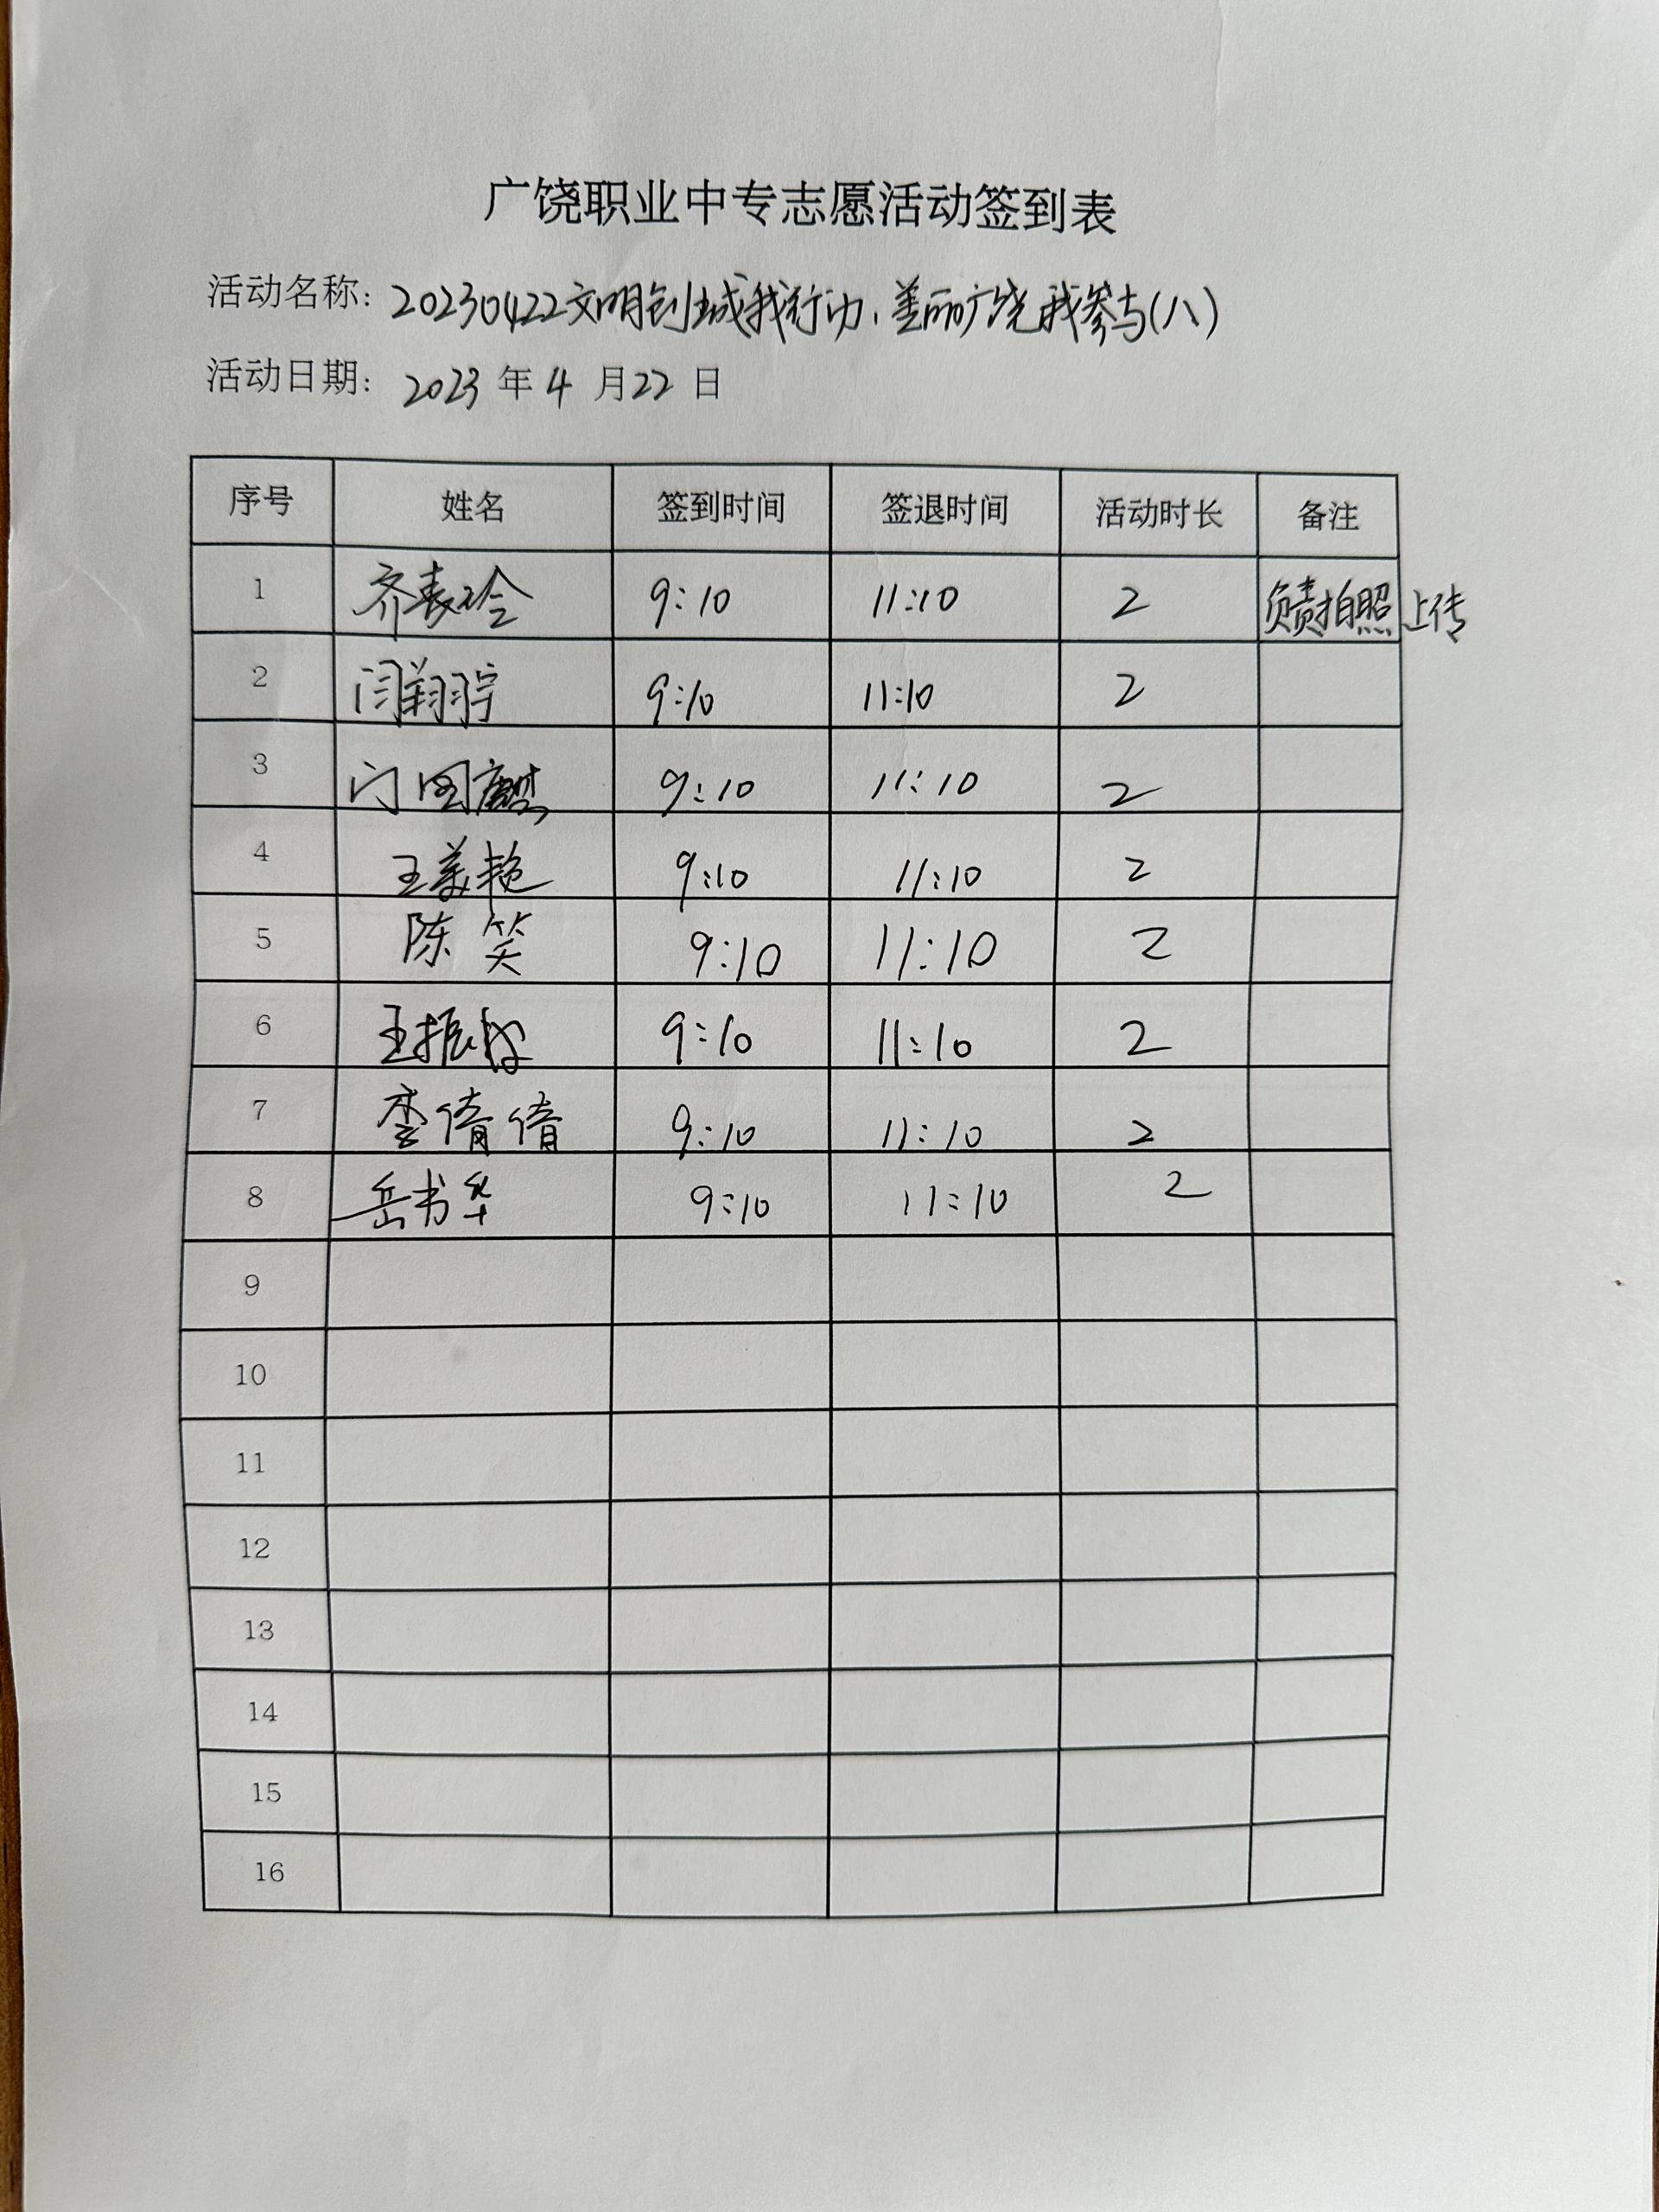 广饶职业中专志愿活动签到表
活动名称：20230422文明创城我行动，美丽广饶我参与（八）
活动日期：2023 年 4 月 22 日
序号 姓名 签到时间 签退时间 活动时长 备注
1 齐春玲 9:10 11:10 2 负责拍照上传
2 闫翔宇 9:10 11:10 2
3 门国麒 9:10 11:10 2
4 王美艳 9:10 11:10 2
5 陈笑 9:10 11:10 2
6 王振 9:10 11:10 2
7 李倩倩 9:10 11:10 2
8 岳书华 9:10 11:10 2
9
10
11
12
13
14
15
16